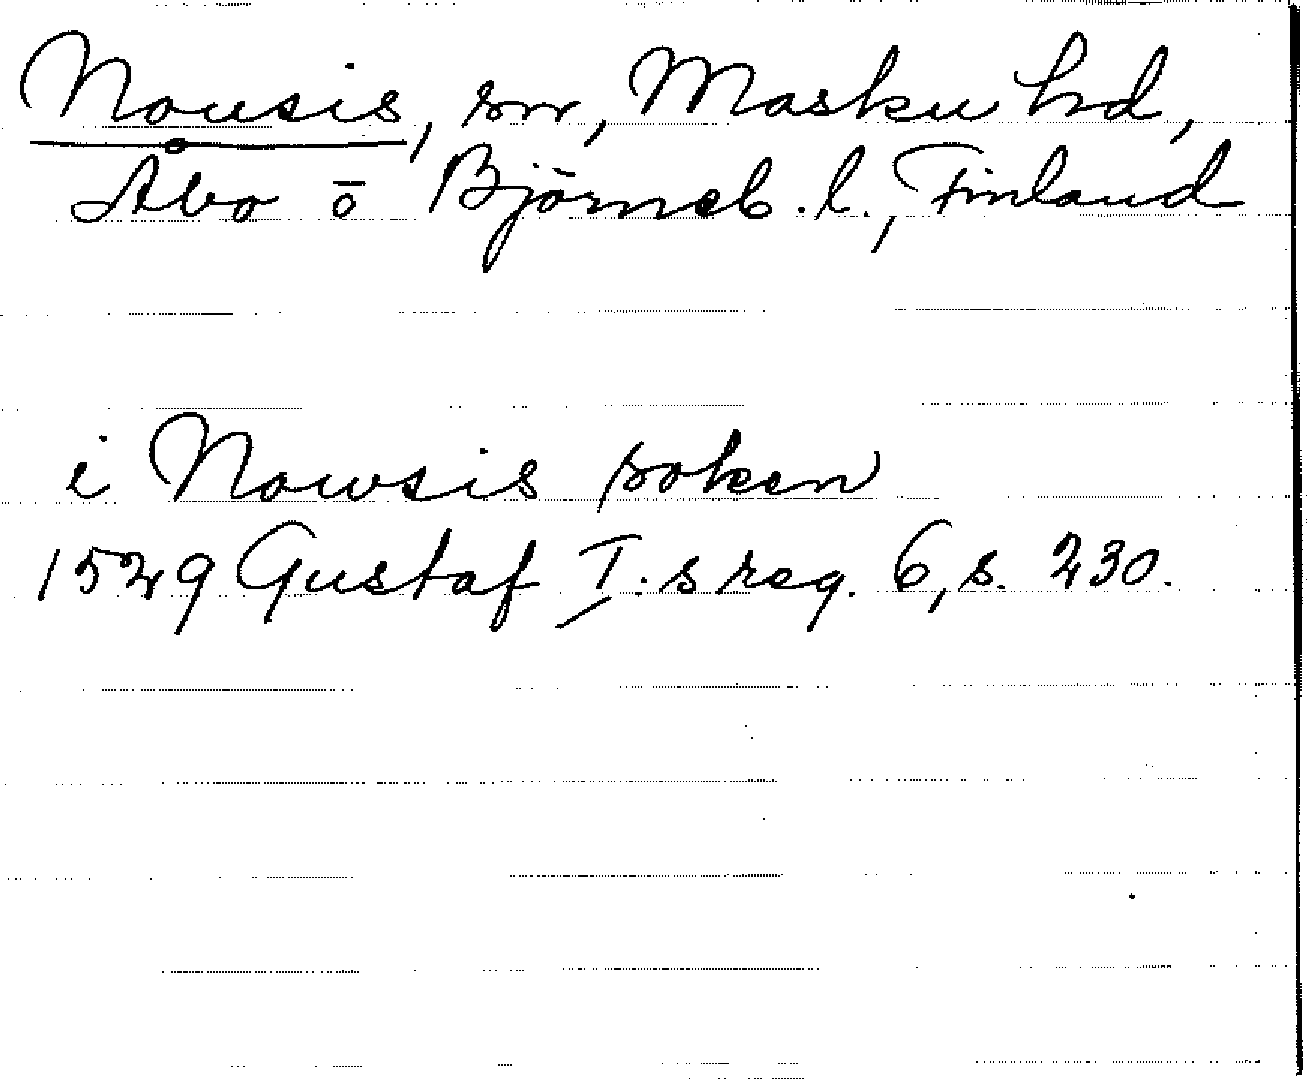 Nousis, sn, Masku hd,
Åbo ō Björneb. l., Finland
i Nowsis soken
1529 Gustaf I:s reg. 6, s. 230.